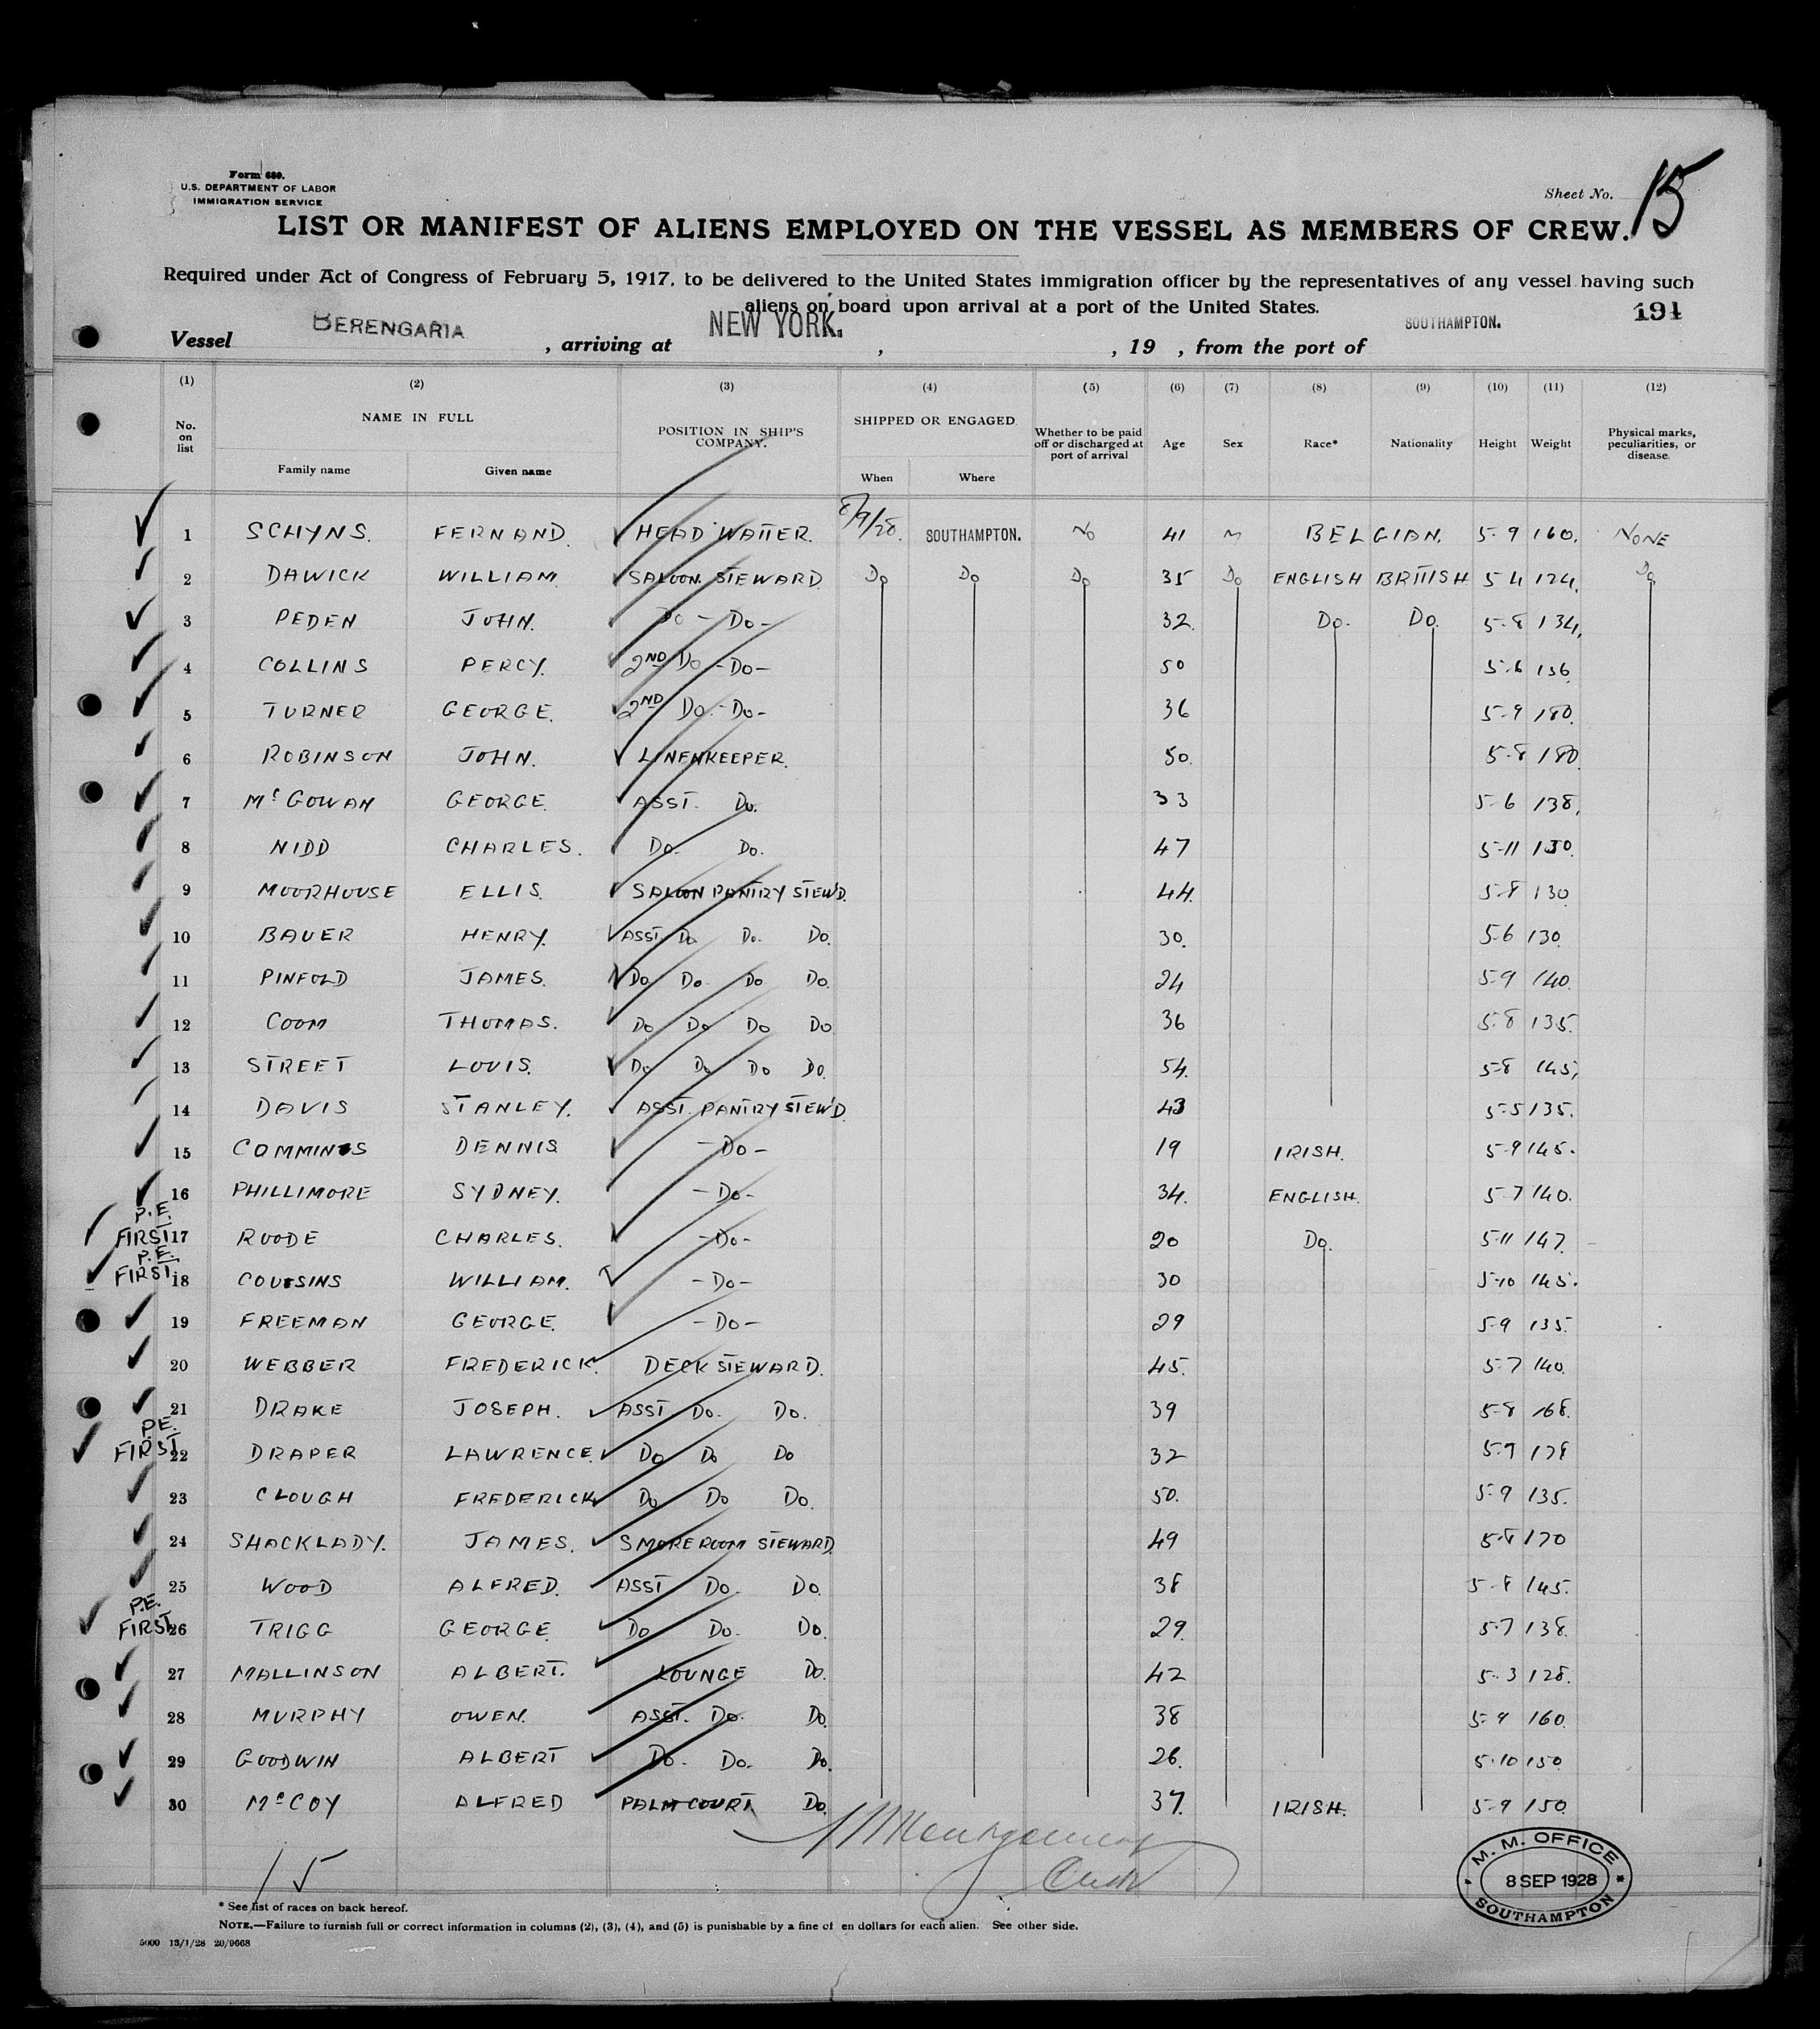 Form 680.
U.S. DEPARTMENT OF LABOR
IMMIGRATION SERVICE
Sheet No. 15
LIST OR MANIFEST OF ALIENS EMPLOYED ON THE VESSEL AS MEMBERS OF CREW.
Required under Act of Congress of February 5, 1917, to be delivered to the United States immigration officer by the representatives of any vessel having such
aliens on board upon arrival at a port of the United States.
191
Vessel BERENGARIA , arriving at NEW YORK. , , 19 , from the port of SOUTHAMPTON.
(1) (2) (3) (4) (5) (6) (7) (8) (9) (10) (11) (12)
No. on list NAME IN FULL POSITION IN SHIP'S COMPANY. SHIPPED OR ENGAGED Whether to be paid off or discharged at port of arrival Age Sex Race* Nationality Height Weight Physical marks, peculiarities, or disease.
Family name Given name When Where
1 SCHYNS. FERNAND. HEAD WAITER. 8/9/28. SOUTHAMPTON. NO 41 M BELGIAN. 5-9 160. NONE
2 DAWICK WILLIAM. SALOON STEWARD Do Do Do 35 Do ENGLISH BRITISH 5 4 124. Do
3 PEDEN JOHN. Do - Do - 32. Do. Do. 5-8 134.
4 COLLINS PERCY. 2ND Do - Do - 50 5-6 136.
5 TURNER GEORGE. 2ND Do. - Do - 36 5-9 180.
6 ROBINSON JOHN. LINENKEEPER. 50. 5-8 180.
7 McGOWAN GEORGE. ASST. Do. 33 5-6 138.
8 NIDD CHARLES. Do. Do. 47 5-11 130.
9 MOORHOUSE ELLIS. SALOON PANTRY STEW'D. 44. 5-8 130
10 BAUER HENRY. ASST. Do. Do. Do. 30. 5-6 130.
11 PINFOLD JAMES. Do Do. Do Do. 24 5-9 140.
12 COOM THOMAS. Do Do Do Do 36 5-8 135.
13 STREET LOUIS. Do Do Do Do. 54. 5-8 145.
14 DAVIS STANLEY. ASST. PANTRY STEW'D. 43 5-5 135.
15 COMMINS DENNIS - Do - 19 IRISH. 5-9 145.
16 PHILLIMORE SYDNEY. - Do - 34. ENGLISH. 5-7 140.
P.E.
FIRST 17 ROODE CHARLES. - Do - 20 Do. 5-11 147.
P.E.
FIRST. 18 COUSINS WILLIAM. - Do - 30 5-10 145.
19 FREEMAN GEORGE. - Do - 29 5-9 135.
20 WEBBER FREDERICK. DECK STEWARD. 45. 5-7 140.
21 DRAKE JOSEPH. ASST Do. Do. 39 5-8 168.
P.E.
FIRST 22 DRAPER LAWRENCE. Do Do Do 32 5-9
23 CLOUGH FREDERICK Do Do Do. 50. 5-9 135.
24 SHACKLADY. JAMES. SMOKEROOM STEWARD. 49 5-8 170
25 WOOD ALFRED. ASST Do. Do. 38 5-8 145.
P.E.
FIRST 26 TRIGG GEORGE. Do Do. Do. 29. 5-7 138.
27 MALLINSON ALBERT. LOUNGE Do. 42 5-3 128.
28 MURPHY OWEN. ASST. Do. Do. 38 5-9 160.
29 GOODWIN ALBERT Do. Do. Do. 26. 5-10 150
30 McCOY ALFRED PALM COURT Do. 37. IRISH. 5-9 150.
Montgomery
15
M. M. OFFICE
8 SEP 1928
SOUTHAMPTON
* See list of races on back hereof.
NOTE.—Failure to furnish full or correct information in columns (2), (3), (4), and (5) is punishable by a fine of en dollars for each alien. See other side.
5000 13/1/28 20/9668